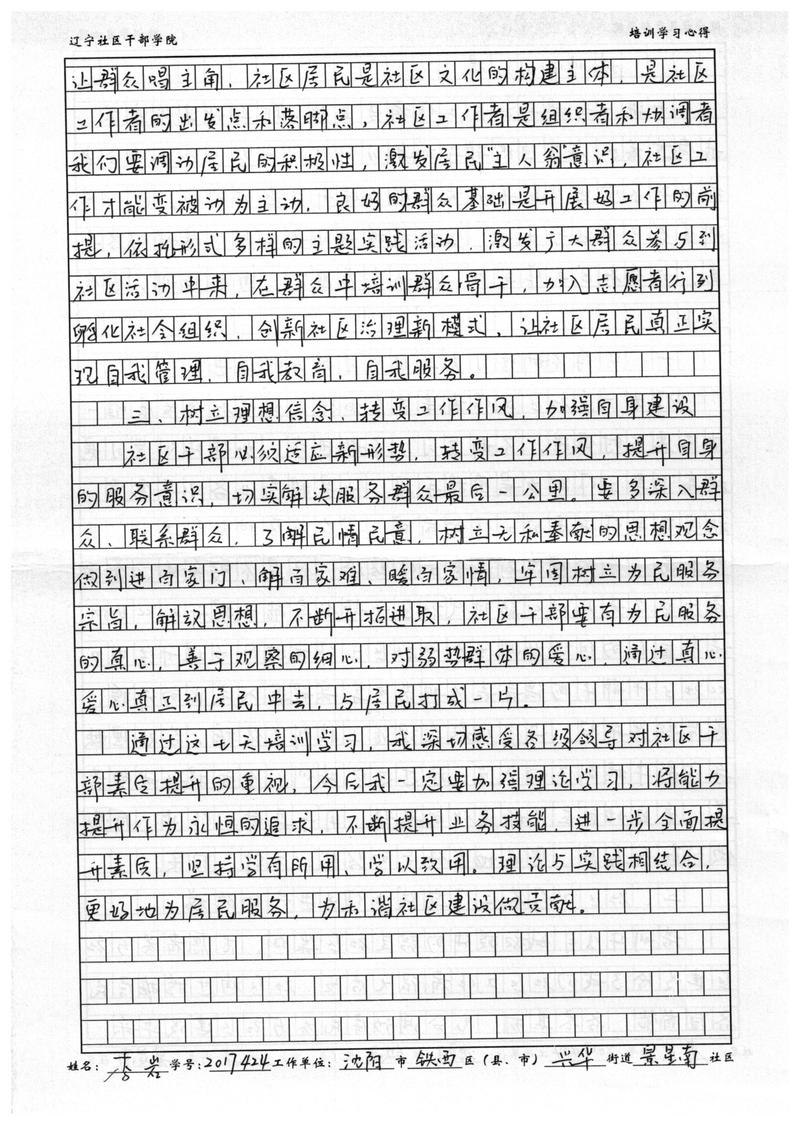 辽宁社区干部学院 培训学习心得
让群众唱主角，社区居民是社区文化的构建主体，是社区
工作者的出发点和落脚点，社区工作者是组织者和协调者
我们要调动居民的积极性，激发居民"主人翁"意识，社区工
作才能变被动为主动，良好的群众基础是开展好工作的前
提，依托形式多样的主题实践活动，激发广大群众参与到
社区活动中来，在群众中培训群众骨干，加入志愿者行列
孵化社会组织，创新社区治理新模式，让社区居民真正实
现自我管理，自我教育，自我服务。
三、树立理想信念，转变工作作风，加强自身建设
社区干部必须适应新形势，转变工作作风，提升自身
的服务意识，切实解决服务群众最后一公里，要多深入群
众、联系群众，了解民情民意，树立无私奉献的思想观念
做到进百家门，解百家难，暖百家情，牢固树立为民服务
宗旨，解放思想，不断开拓进取，社区干部要有为民服务
的真心，善于观察的细心，对弱势群体的爱心，通过真心
爱心真正到居民中去，与居民打成一片。
通过这七天培训学习，我深切感受各级领导对社区干
部素质提升的重视，今后我一定要加强理论学习，将能力
提升作为永恒的追求，不断提升业务技能，进一步全面提
升素质，坚持学有所用、学以致用。理论与实践相结合，
更好地为居民服务，为和谐社区建设做贡献。
姓名：李岩 学号：2017424 工作单位：沈阳 市 铁西 区（县、市） 兴华 街道 景星南 社区